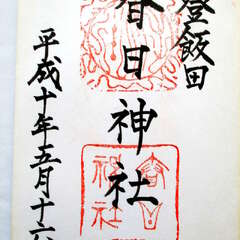 登飯田
春日神社
平成十年五月十六